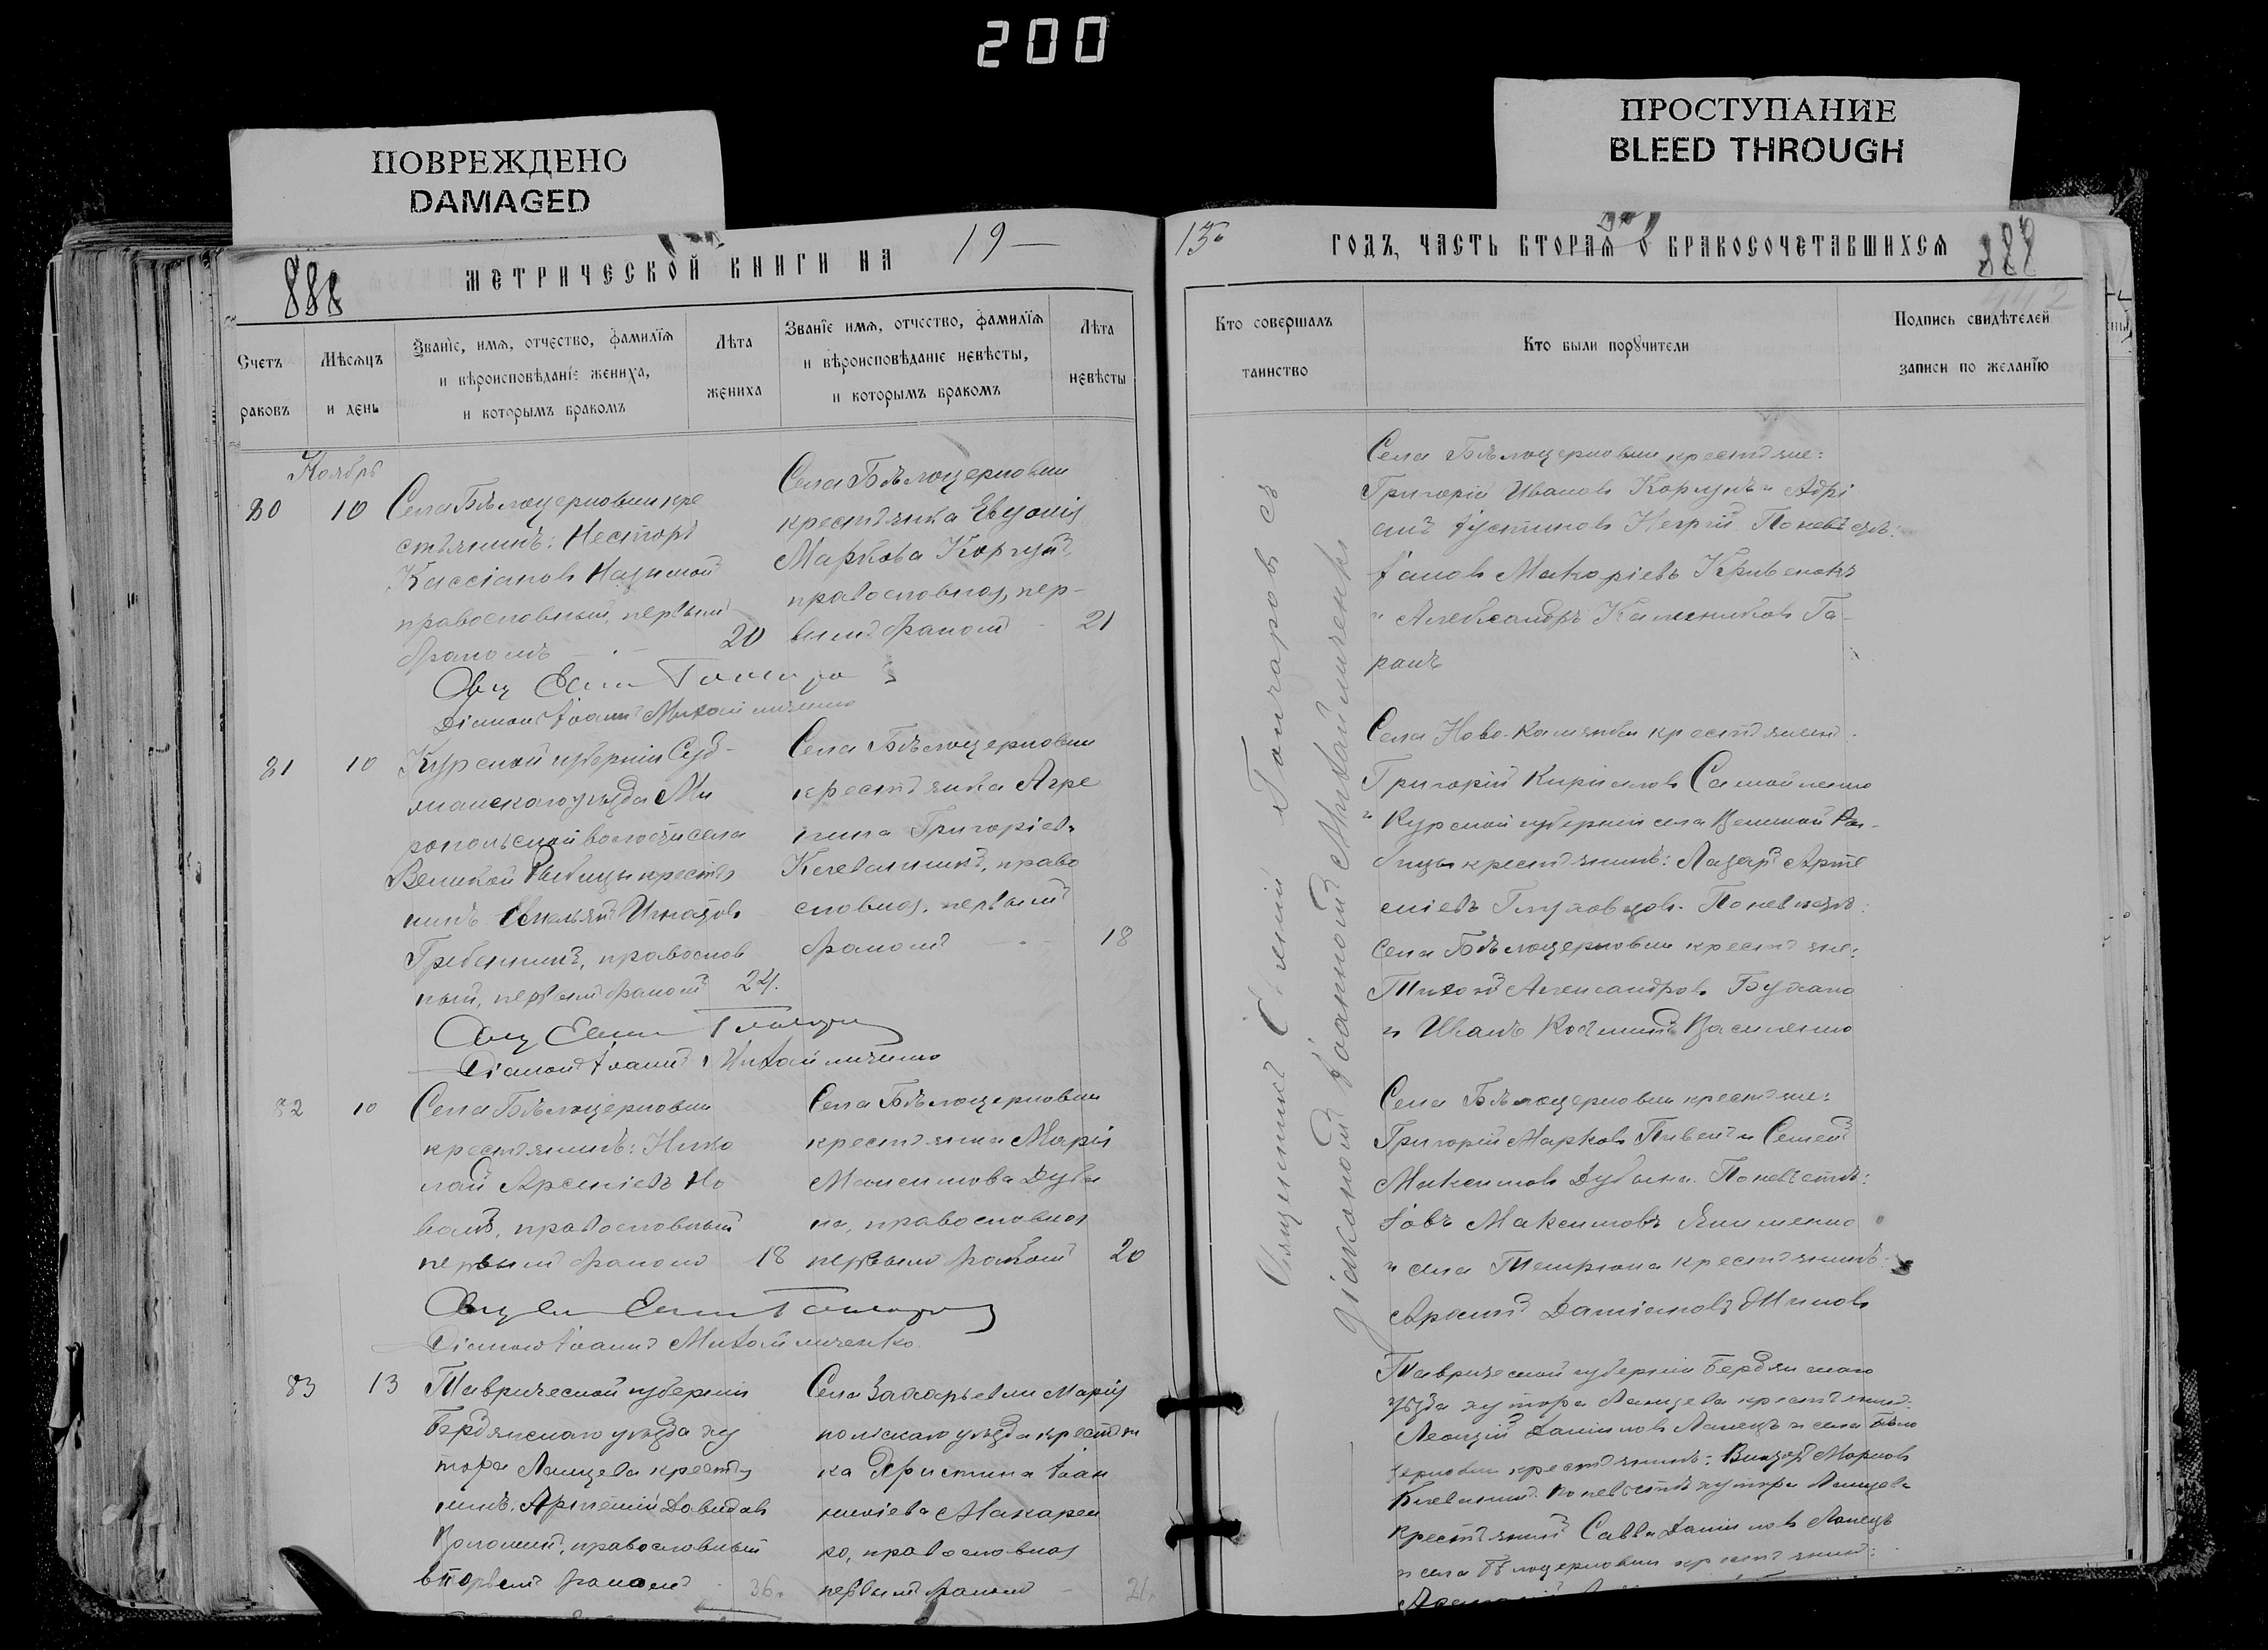 200
ПОВРЕЖДЕНО
DAMAGED
ПРОСТУПАНИЕ
BLEED THROUGH
888
МЕТРИЧЕСКОЙ КНИГИ НА
19—
Счетъ
раковъ
Мѣсяцъ
и день
Званїе, имя, отчество, фамилїя
и вѣроисповѣданїе жениха,
и которымъ бракомъ
Лѣта
жениха
Званїе имя, отчество, фамилїя
и вѣроисповѣданїе невѣсты,
и которымъ бракомъ
Лѣта
невѣсты
Ноябрь
80
10
Села Бѣлоцерковки кре
стьянинъ: Несторъ
Кассіановъ
православный, первый
бракомъ
20
Села Бѣлоцерковки
крестьянка Евдокія
Маркова Коржунъ
православная, пер-
вымъ бракомъ
21
Діаконъ Іоаннъ Михайличенко
81
10
Курской губерніи Суд-
жанскаго уѣзда Ми
ропольской волости села
Великой Рыбицы крестья
нинъ Емельянъ Игнатовъ
Гребенникъ, православ
ный, первымъ бракомъ
24.
Села Бѣлоцерковки
крестьянка Агре
пина Григоріева
православная, первымъ
бракомъ
18
Діаконъ Іоаннъ Михайличенко
82
10
Села Бѣлоцерковки
крестьянинъ: Нико
лай Арсеніевъ Но
вакъ, православный
первымъ бракомъ
18
Села Бѣлоцерковки
крестьянка Марія
Максимова Дубы
на, православная
первымъ бракомъ
20
Діаконъ Іоаннъ Михайличенко
83
13
Таврической губерніи
Бердянскаго уѣзда ху
тора Ланцева крестья
нинъ: Артемій Давидовъ
православный
вторымъ бракомъ
36.
Села Захарьевки Маріу
польскаго уѣзда крестьян
ка Христина Іоан
никіева Макарен
ко, православная
первымъ бракомъ
21.
13.
ГОДЪ, ЧАСТЬ ВТОРАЯ О БРАКОСОЧЕТАВШИХСЯ
888
Кто совершалъ
таинство
Кто были поручители
Подпись свидѣтелей
записи по желанїю
Священникъ Евгеній Гончаровъ съ
діакономъ Іоанномъ Михайличенко
Села Бѣлоцерковки крестьяне:
Григорій Ивановъ Коржунъ и Адрі
анъ Іустиновъ Негрій. По невѣстѣ:
Іаковъ Макаріевъ Кривенокъ
и Александръ Каленниковъ Та-
ранъ
Села Ново-Каменки крестьянинъ:
Григорій Кириловъ Самойленко
и Курской губерніи села Великой Ры-
бицы крестьянинъ: Лазарь Арте
міевъ Глуховцовъ. По невѣстѣ:
села Бѣлоцерковки крестьяне:
Тихонъ Александровъ Бухало
и Иванъ Косминъ Василенко
Села Бѣлоцерковки крестьяне:
Григорій Марковъ Пивень и Семенъ
Максимовъ Дубына. По невѣстѣ:
Іовъ Максимовъ Якименко
и села Темрюка крестьянинъ:
Даміановъ
Таврической губерніи Бердянскаго
уѣзда хутора Ланцева крестьянинъ:
Леонтій Даниловъ Ланецъ и села Бѣло
церковки крестьянинъ: Викторъ Марковъ
По невѣстѣ хутора Ланцева
крестьянинъ Савва Даниловъ Ланецъ
и села Бѣлоцерковки крестьянинъ: